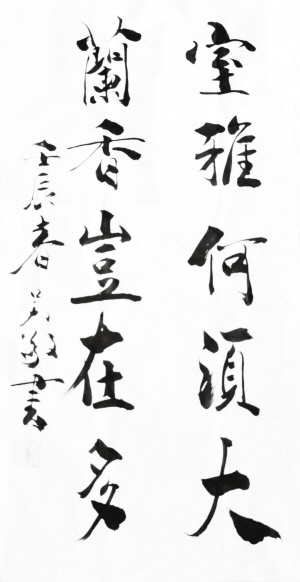 室雅何須大
蘭香豈在多
壬辰春吳敬書